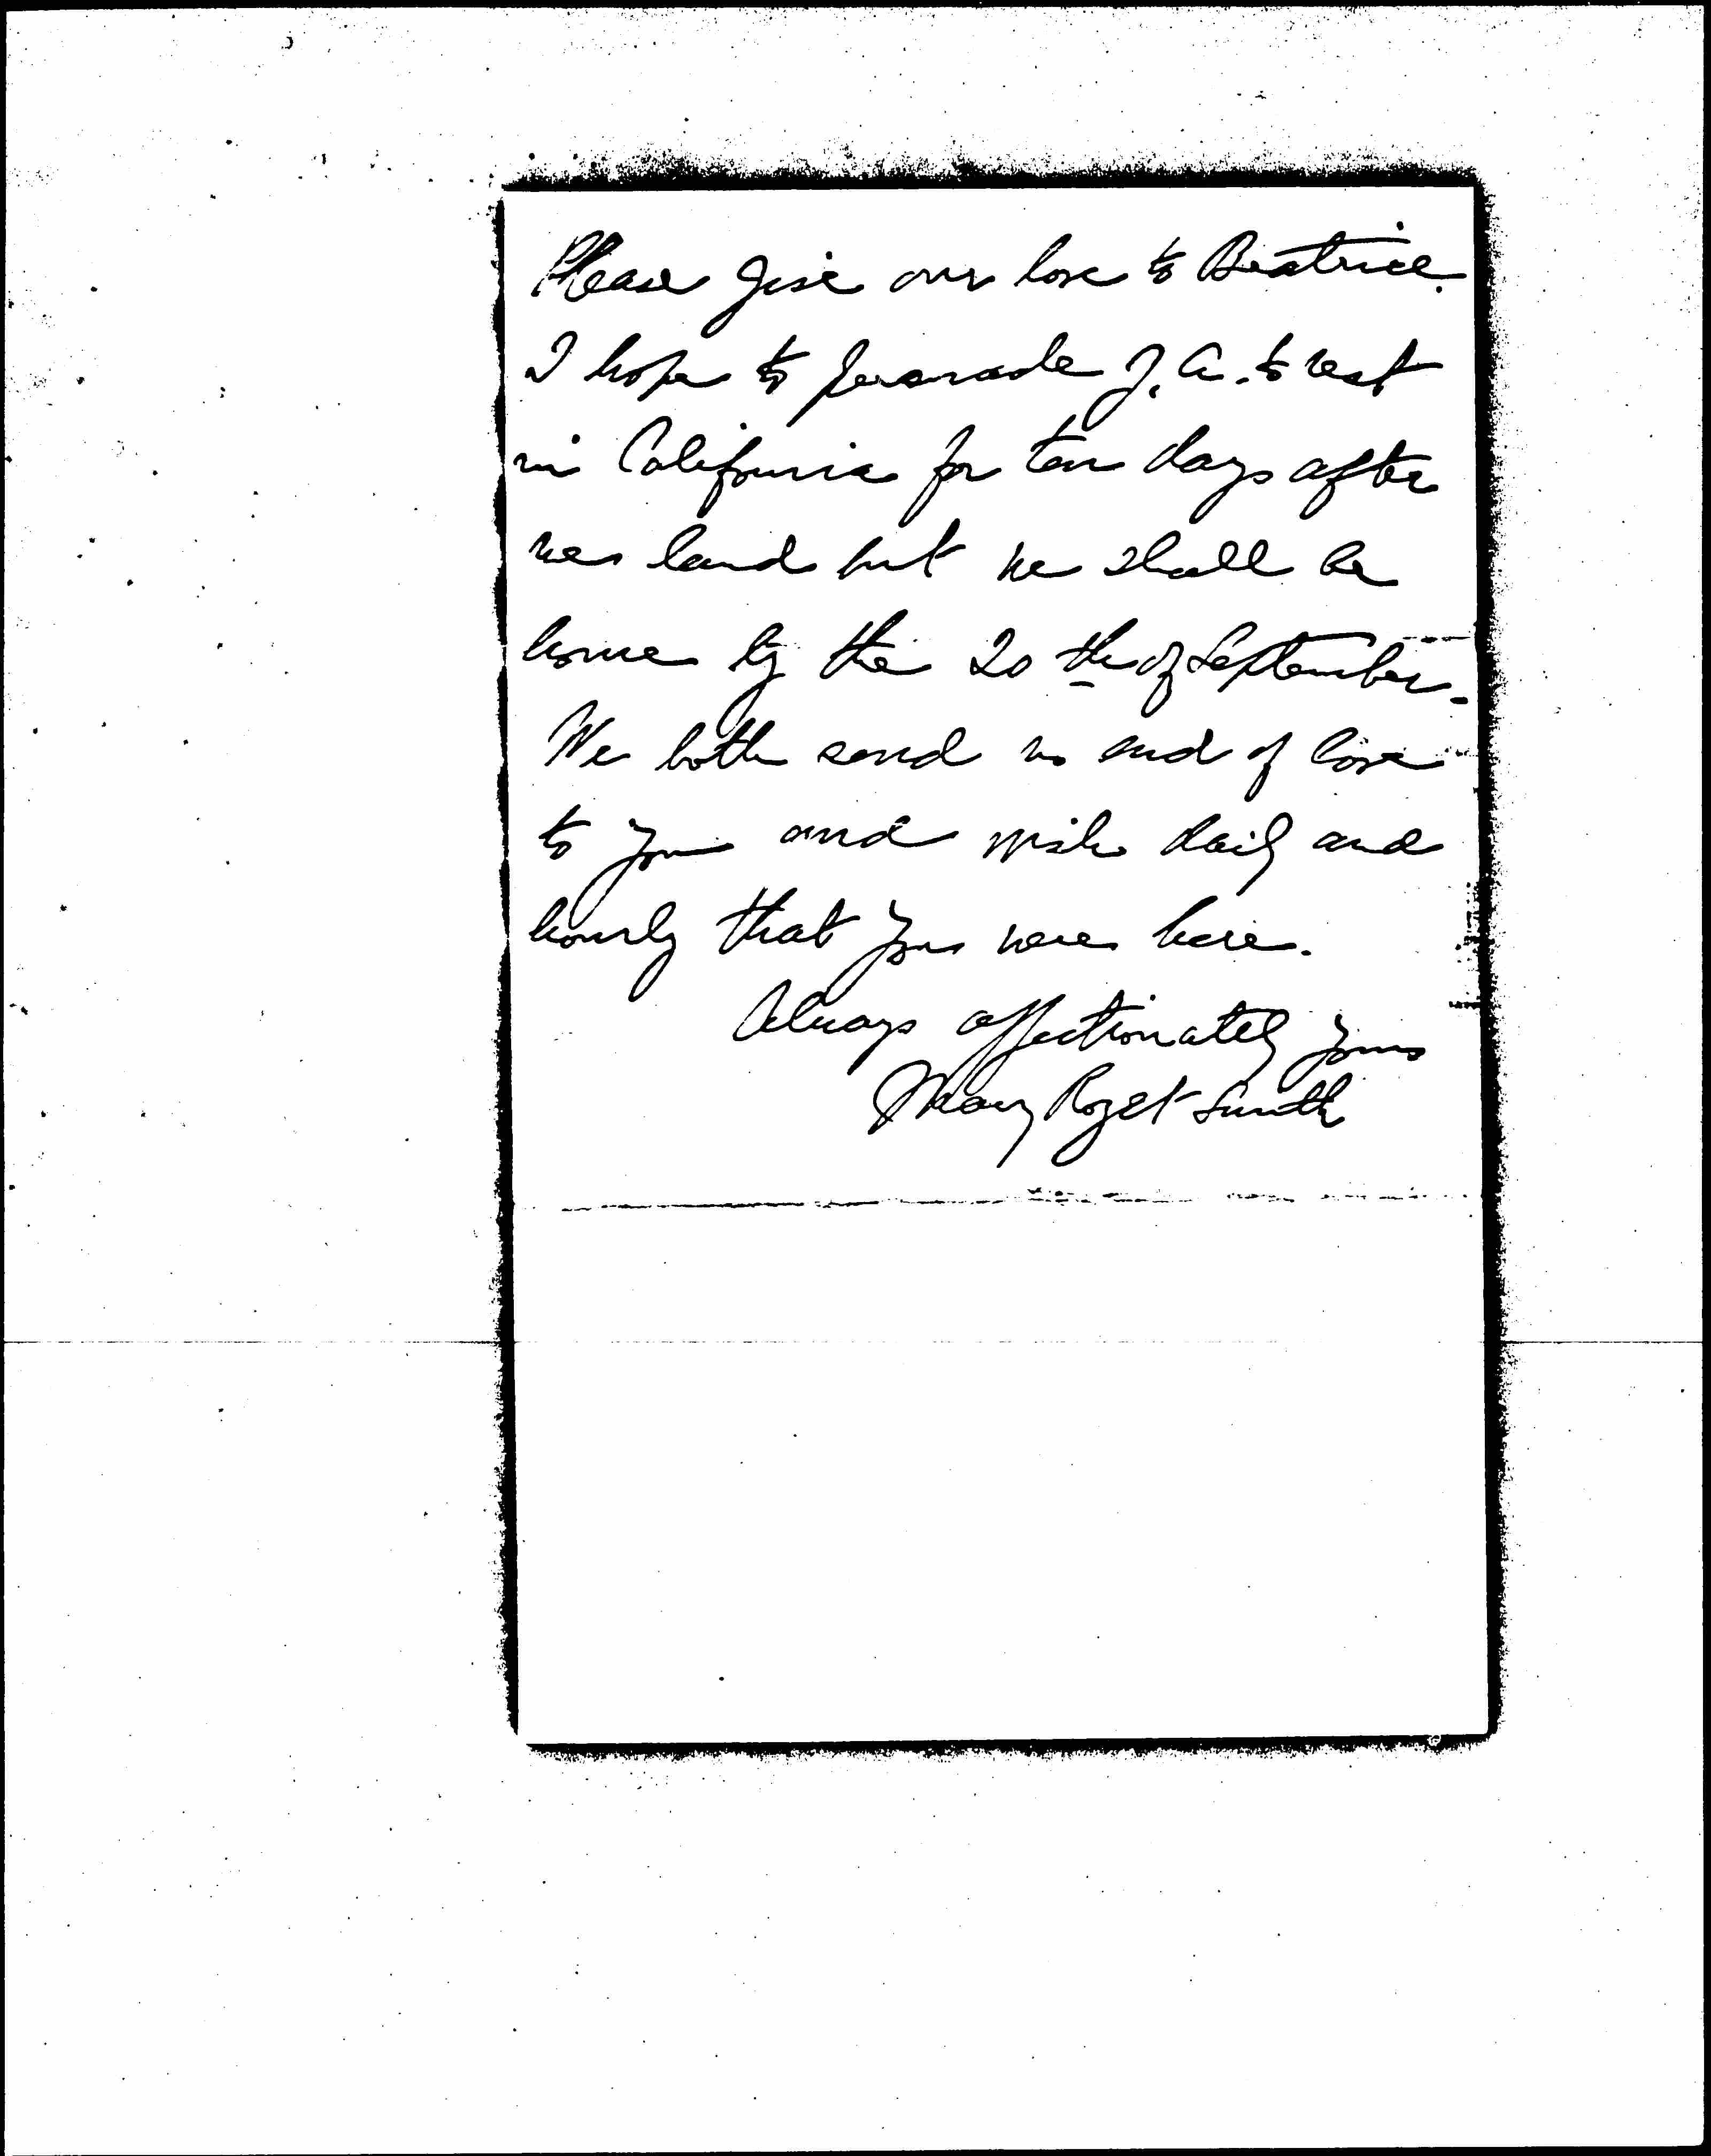 Please give our love to Beatrice.
I hope to persuade J. A. to rest
in California for ten days after
we land but we shall be
home by the 20th of September.
We both send no end of love
to you and wish daily and
hourly that you were here.
Always affectionately yours
Mary Rozet Smith